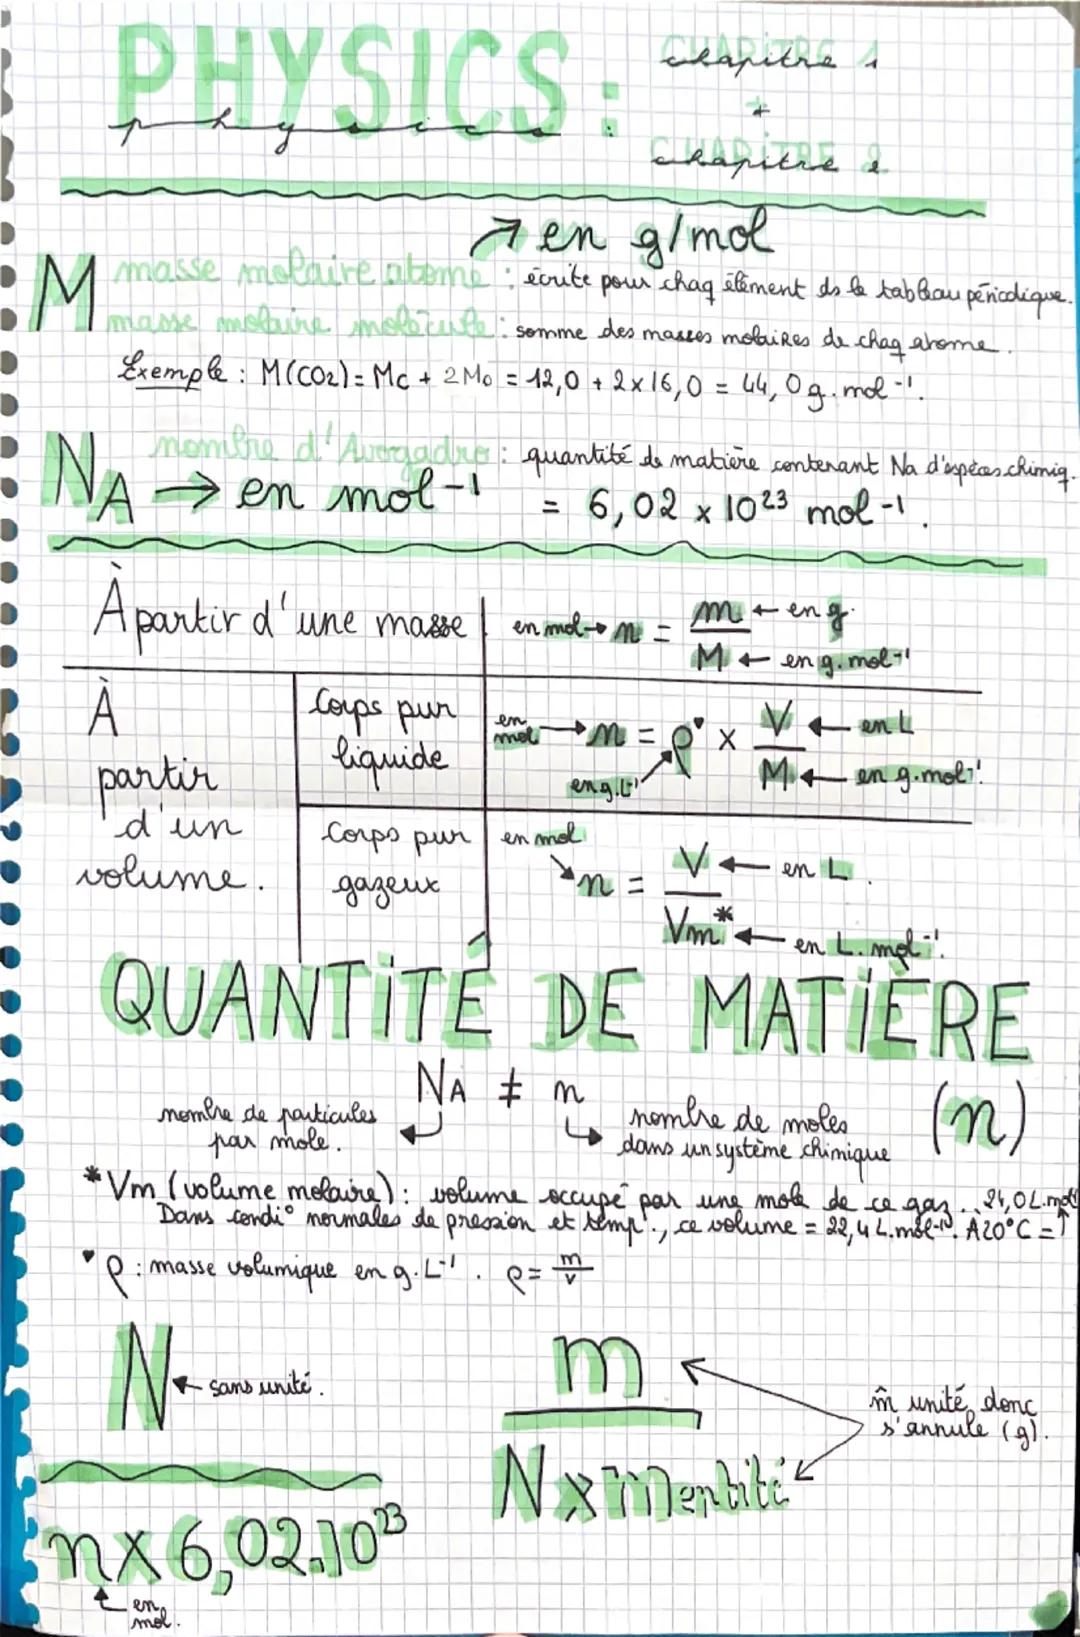 PHYSICS :
physics :
CHAPITRE 1
chapitre 1
+
CHAPITRE 2
chapitre 2
→ en g/mol
M masse molaire atome : écrite pour chaq élément ds le tableau périodique.
masse molaire molécule : somme des masses molaires de chaq atome.
Exemple : M(CO2) = Mc + 2Mo = 12,0 + 2x16,0 = 44,0 g.mol-1.
NA nombre d'Avogadro : quantité de matière contenant Na d'espèces chimiq.
→ en mol-1 = 6,02 x 10^23 mol-1.
À partir d'une masse
en mol → n = m/M
← en g.
← en g.mol-1
À partir d'un volume.
Corps pur liquide
en mol → n = ρ♥ x V/M
← en L
en g.L-1
← en g.mol-1.
Corps pur gazeux
en mol
n = V/Vm*
← en L.
← en L.mol-1.
QUANTITÉ DE MATIÈRE
(n)
NA ≠ n
nombre de particules par mole.
nombre de moles dans un système chimique
* Vm (volume molaire) : volume occupé par une mole de ce gaz.. 24,0L.mol-1
Dans condi° normales de pression et temp°., ce volume = 22,4 L.mol-1. À 20°C = ↑
♥ ρ : masse volumique en g.L-1. ρ = m/v
N ← sans unité.
n x 6,02.10^23
en mol.
m
N x mentité
m̂ unité, donc s'annule (g).